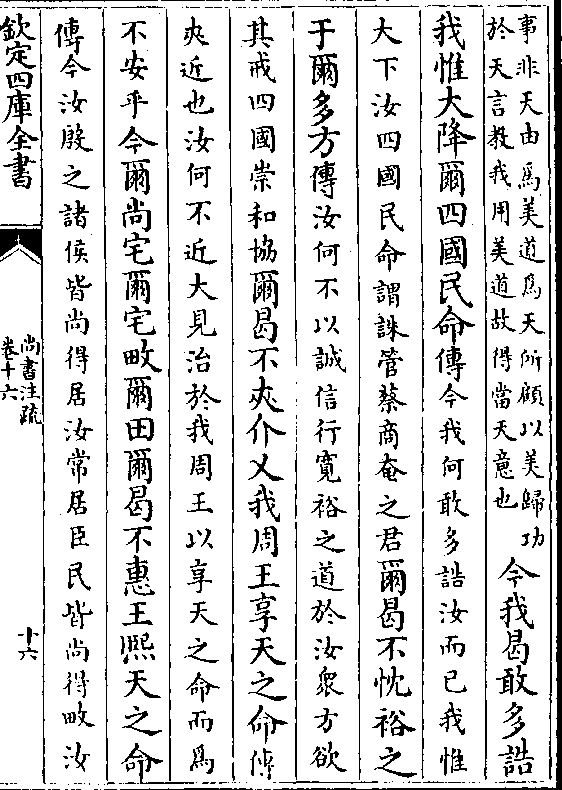 事非天由爲美道爲天所顧以美歸功
於天言教我用美道故得當天意也
今我曷敢多誥
我惟大降爾四國民命傳今我何敢多誥汝而已我惟
大下汝四國民命謂誅管蔡商奄之君爾曷不忱裕之
于爾多方傳汝何不以誠信行寛裕之道於汝衆方欲
其戒四國崇和協爾曷不夾介乂我周王享天之命傳
夾近也汝何不近大見治於我周王以享天之命而爲
不安乎今爾尚宅爾宅畋爾田爾曷不惠王熙天之命
傳今汝殷之諸侯皆尚得居汝常居臣民皆尚得畋汝
欽定四庫全書
尚書注疏
卷十六
十六